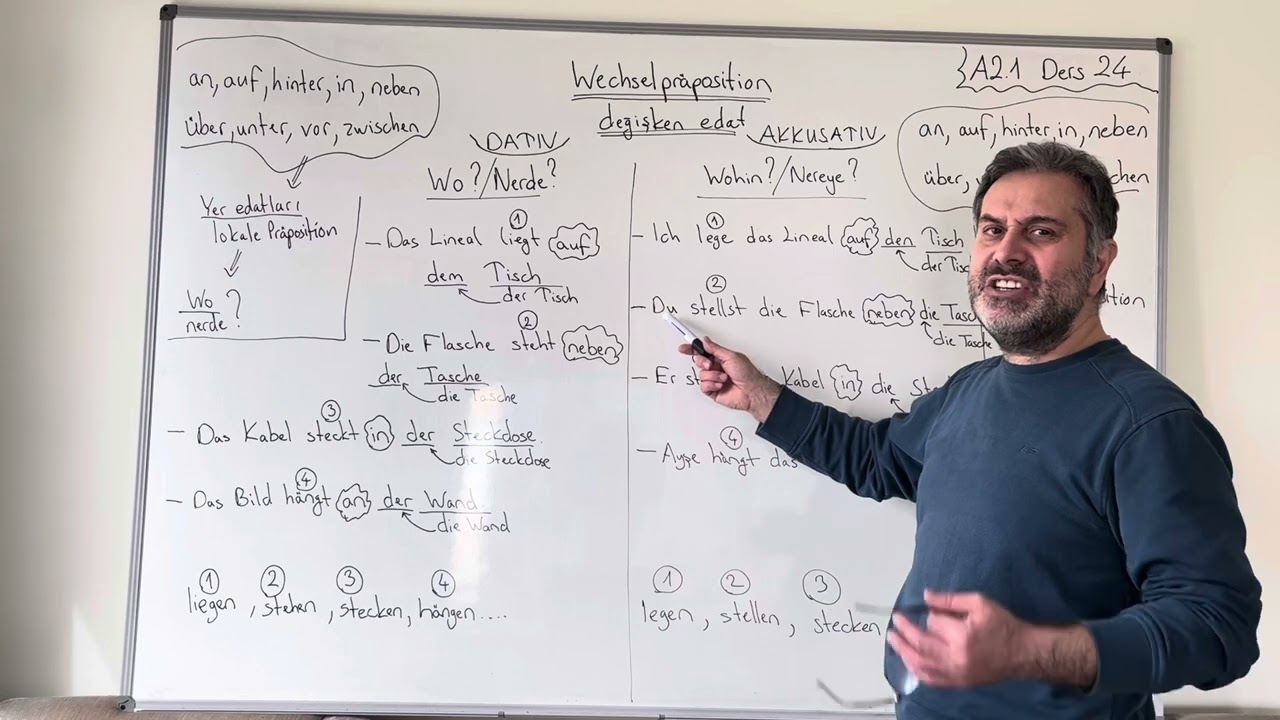 an, auf, hinter, in, neben
über, unter, vor, zwischen
Yer edatları
lokale Präposition
Wo
nerde?
Wechselpräposition
degişken edat
A2.1 Ders 24
DATIV
Wo?/Nerde?
1
- Das Lineal liegt auf
dem Tisch
der Tisch
2
- Die Flasche steht neben
der Tasche
die Tasche
3
- Das Kabel steckt in der Steckdose.
die Steckdose
4
- Das Bild hängt an der Wand.
die Wand
1 2 3 4
liegen, stehen, stecken, hängen....
AKKUSATIV
Wohin?/Nereye?
an, auf, hinter, in, neben
über,
1
- Ich lege das Lineal auf den Tisch
der Tisch
2
- Du stellst die Flasche neben die
die Tasche
- Er Kabel in die
4
- Ayşe hängt das
1 2 3
legen, stellen, stecken